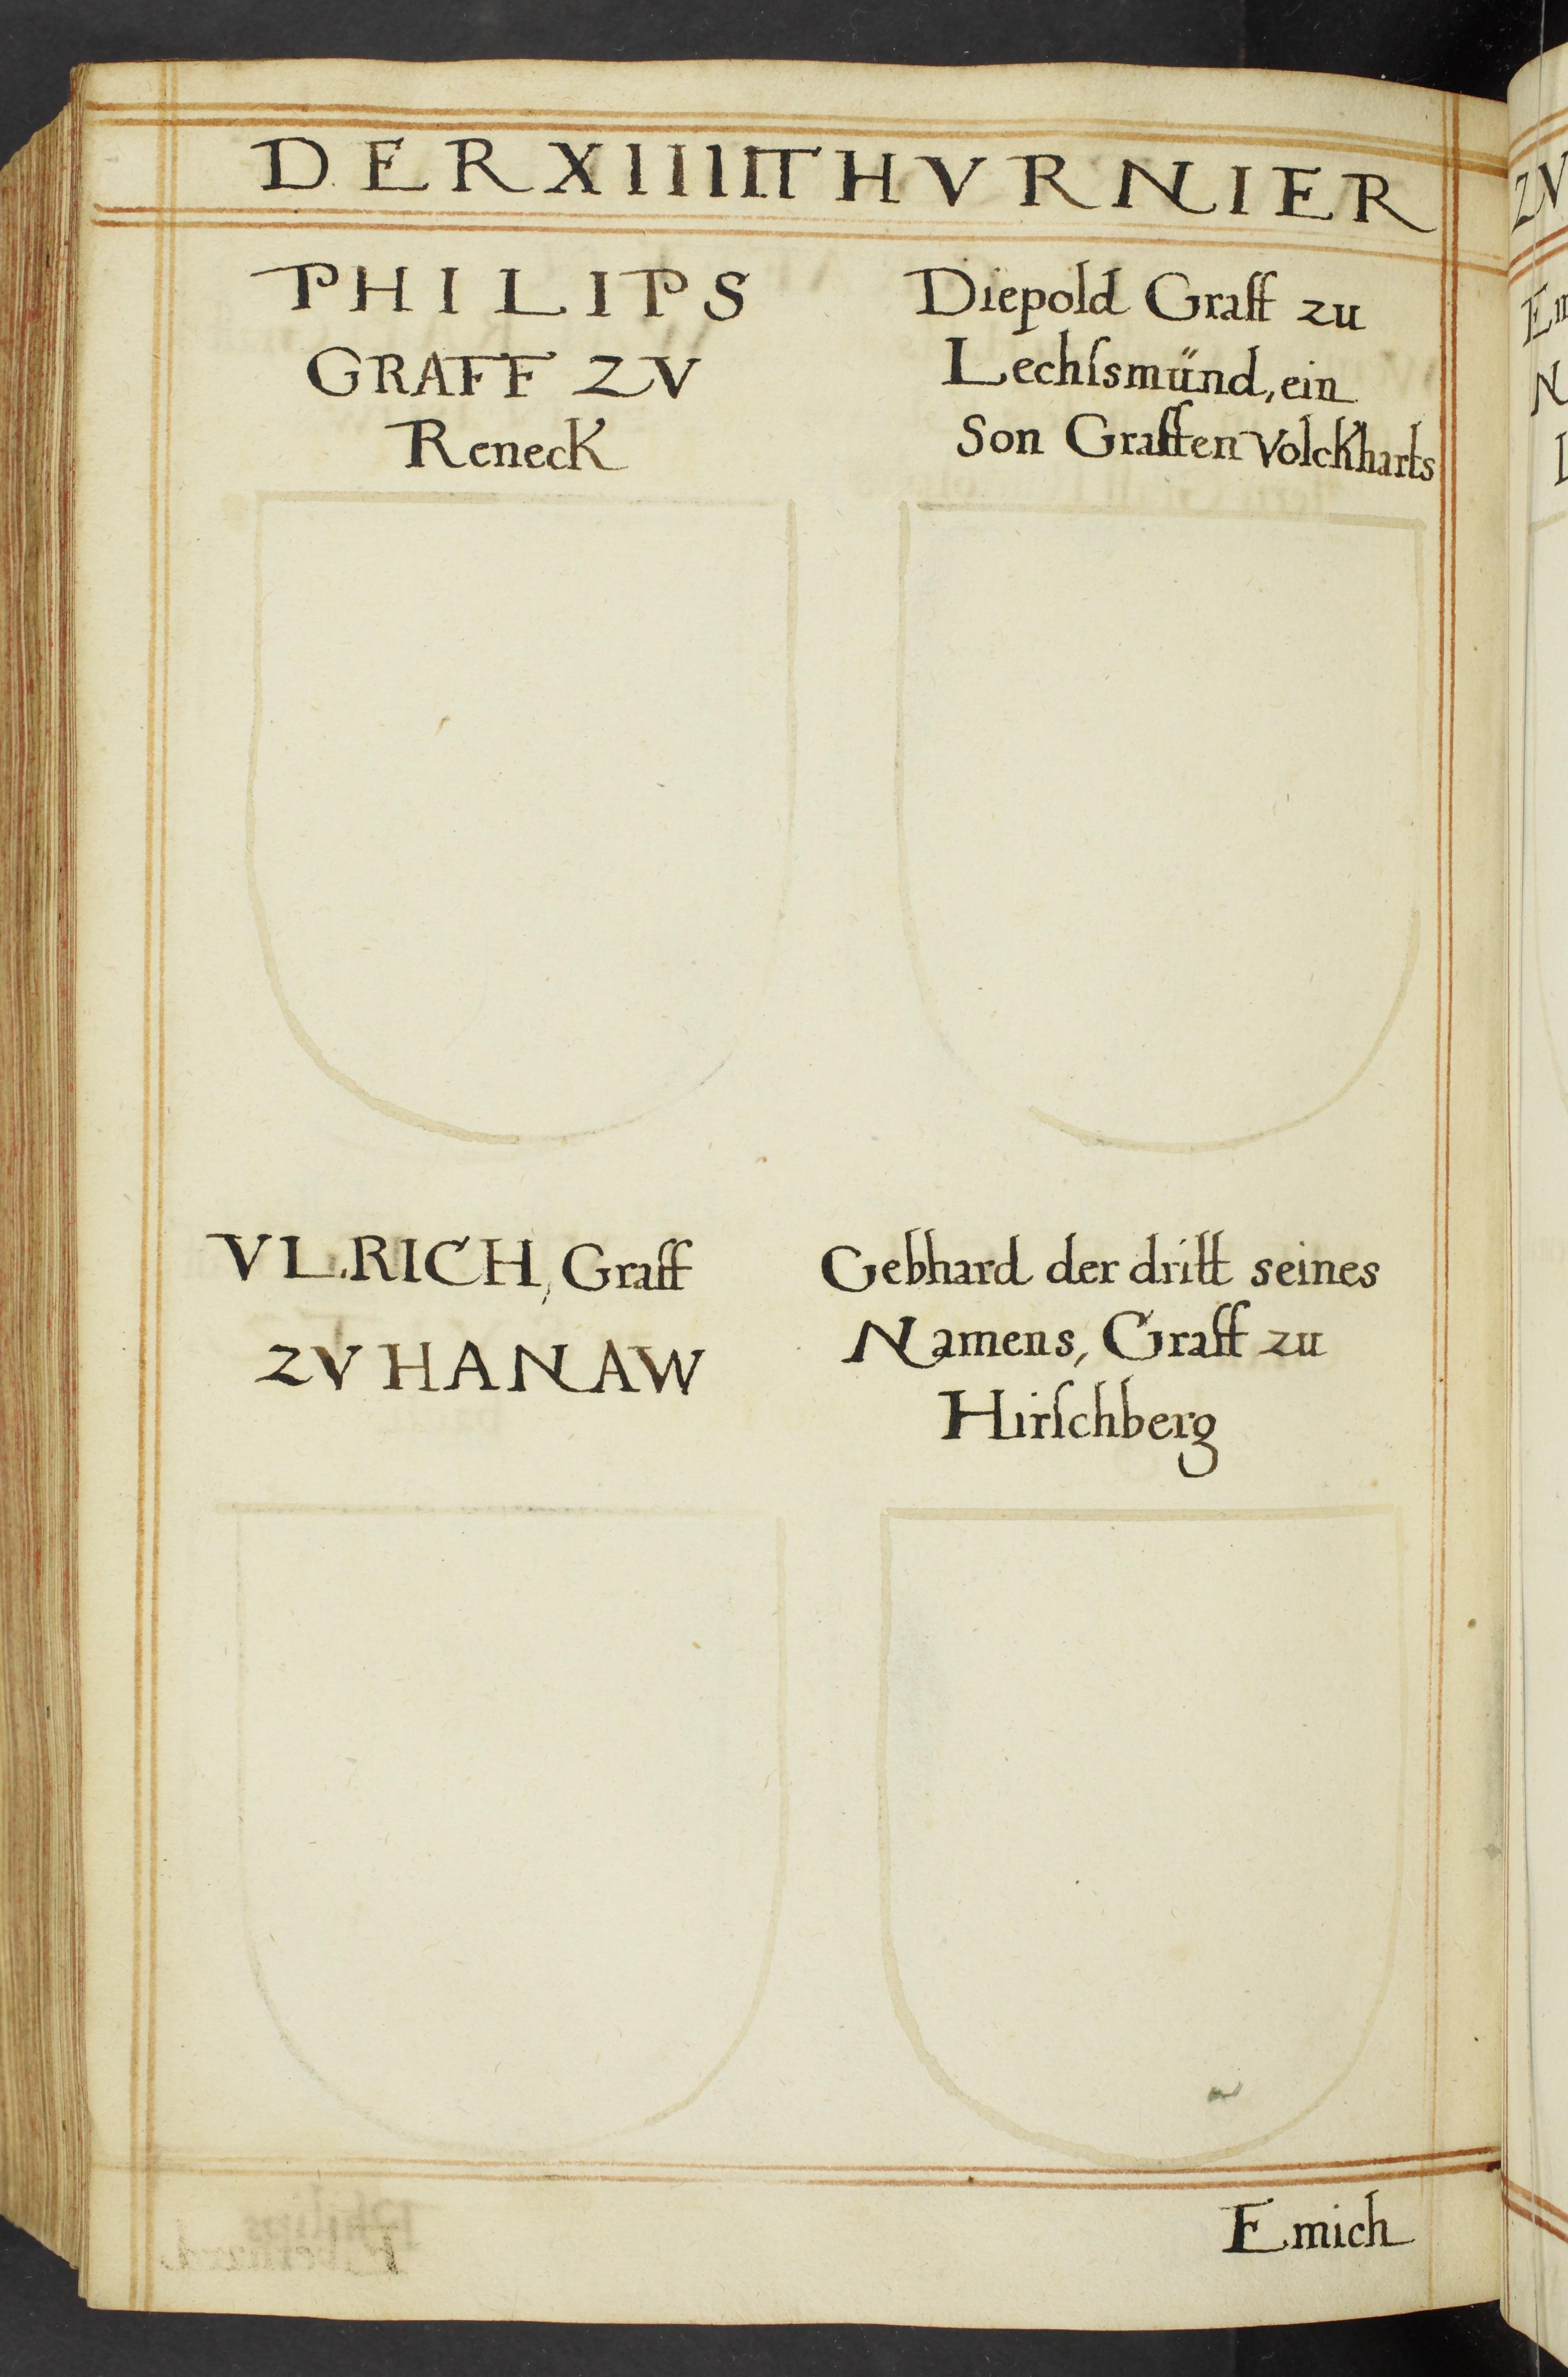 DER XIIII THVRNIER
PHILIPS
GRAFF ZV
Reneck
Diepold Graff zu
Lechſsmünd, ein
Son Graffen Volckharts
VLRICH, Graff
ZV HANAW
Gebhard der dritt seines
Namens, Graff zu
Hirſchberg
Emich
ZV